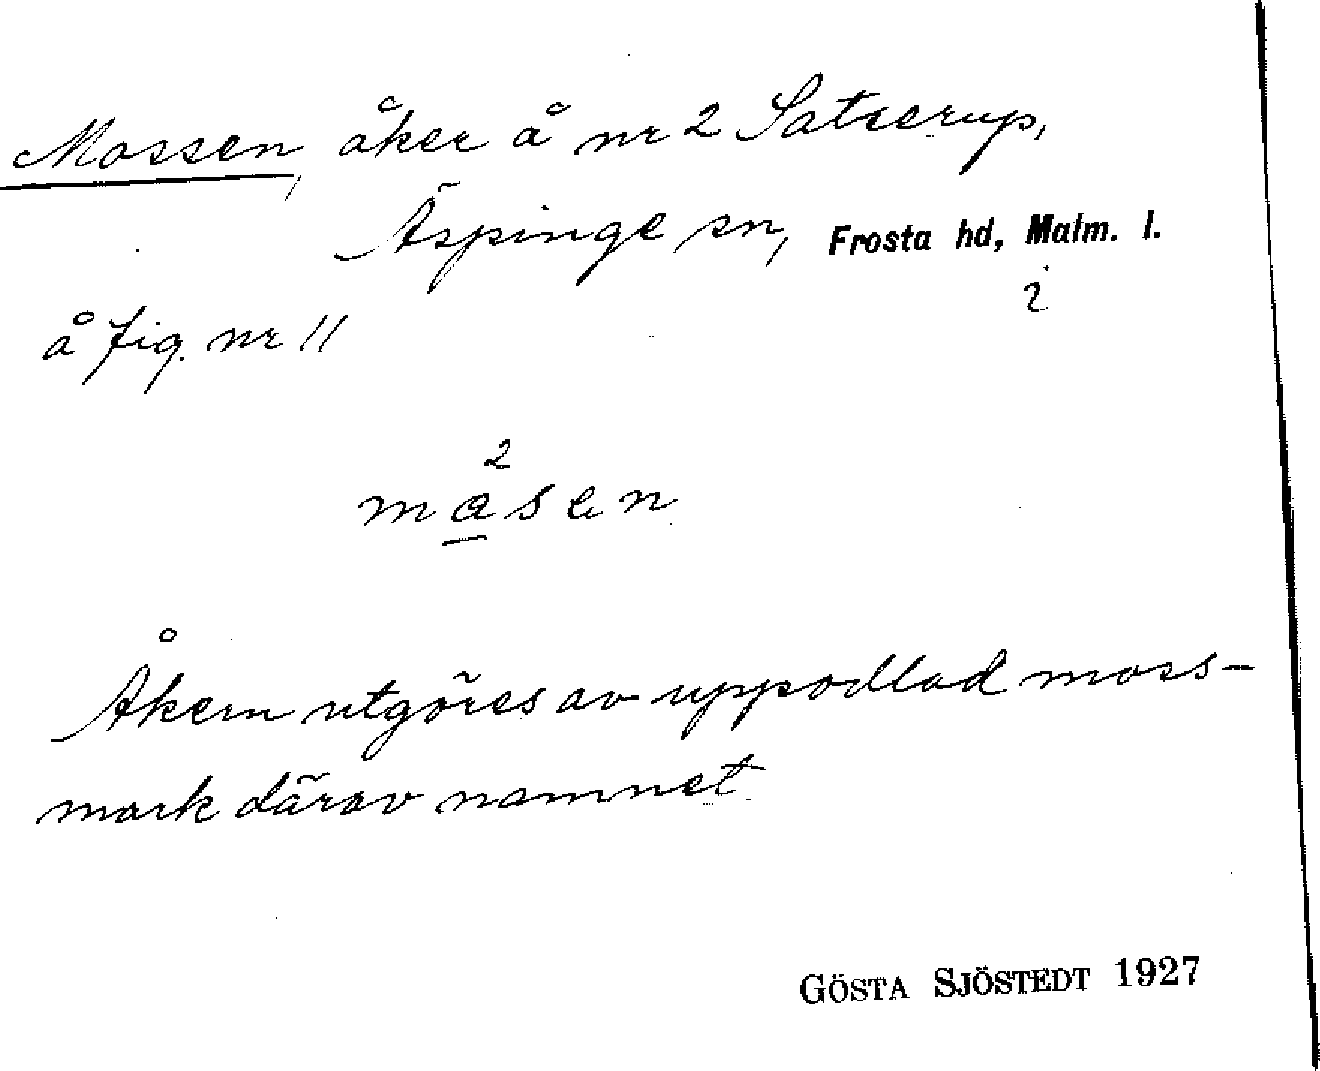 Mossen, åker å nr 2 Satserup,
Äspinge sn, Frosta hd, Malm. l.
i
å fig. nr 11
2
måsen
Åkern utgöres av uppodlad moss-
mark därav namnet
GÖSTA SJÖSTEDT 1927